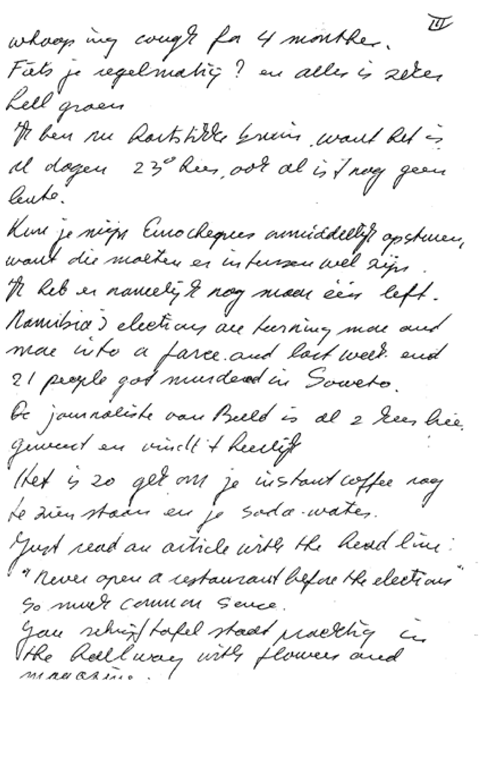 III
whooping cough for 4 months.
Fiets je regelmatig? en alles is zeker
hell groen
Ik ben nu hartstikke bruin, want het is
al dagen 23° hier, ook al is 't nog geen
lente.
Kun je mijn Eurocheques onmiddellijk opsturen,
want die moeten er intussen wel zijn.
Ik heb er namelijk nog maar één left.
Namibia's elections are turning more and
more into a farce. and last week-end
21 people got murdered in Soweto.
De journaliste van Beeld is al 2 keer hier
geweest en vindt 't heerlijk
Het is zo gek om je instant coffee nog
te zien staan en je soda-water.
Just read an article with the head line:
"Never open a restaurant before the elections"
So much common sence.
You schrijftafel staat prachtig in
the hallway with flowers and